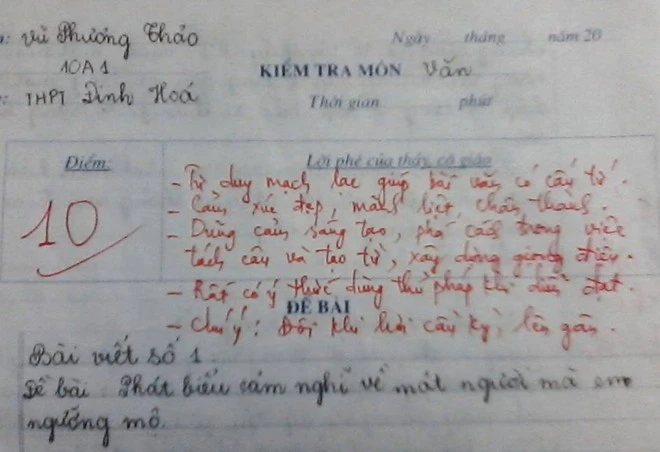 : Vũ Phương Thảo
Ngày tháng năm 20
10A1
KIỂM TRA MÔN Văn
: THPT Định Hoá
Thời gian phút
Điểm:
Lời phê của thầy, cô giáo
10
- Tư duy mạch lạc giúp bài văn có cấu tứ.
- Cảm xúc đẹp, mãnh liệt, chân thành.
- Dũng cảm, sáng tạo, phá cách trong việc
tách câu và tạo từ, xây dựng giọng điệu.
- Rất có ý thức dùng thủ pháp khi diễn đạt.
ĐỀ BÀI
- Chú ý: Đôi khi hơi cầu kỳ, lên gân.
Bài viết số 1.
Đề bài. Phát biểu cảm nghĩ về một người mà em
ngưỡng mộ.